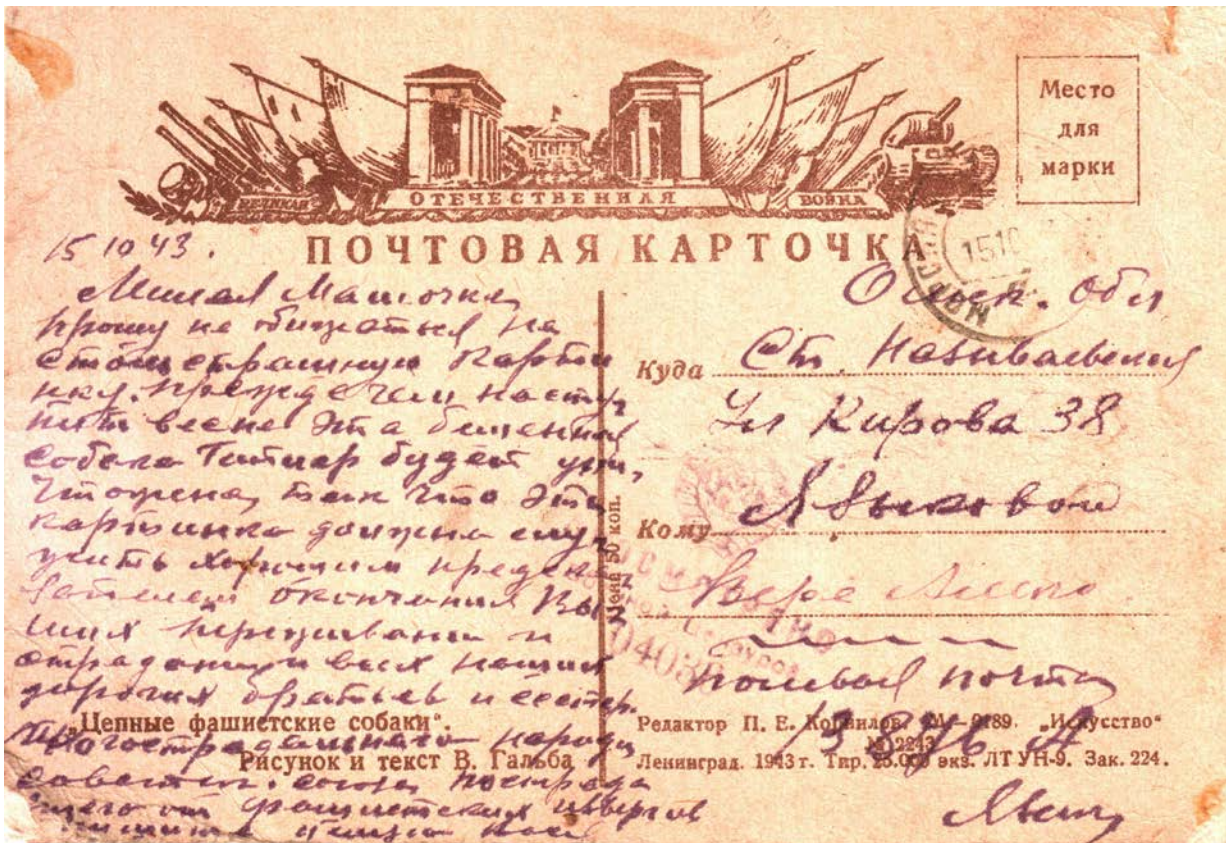 ВЕЛИКАЯ ОТЕЧЕСТВЕННАЯ ВОЙНА
Место
для
марки
ПОЧТОВАЯ КАРТОЧКА
15 10 43.
Милая Мамочка
прошу не обижаться на
страшную картин
ку. Прежде чем насту
пит весна эта бешенная
собака Гитлер будет уни,
чтожена, так что эта
картинка должна слу,
жить хорошим предска
зателем окончания Ва
ших переживаний и
страданий всех наших
дорогих братьев и сестер
многострадального народа
советск. союза пострада
вшего от фашистских извергов
"Цепные фашистские собаки".
Рисунок и текст В. Гальба
Цена 50 коп.
1510
Омск. обл
Куда Ст. Называевская
Ул Кирова 38
Кому Языковой
Вере
полевая почта
Редактор П. Е. Корнилов. М—0189. „Искусство"
№ 2243
Ленинград. 1943 г. Тир. 25.000 экз. ЛТ УН-9. Зак. 224.